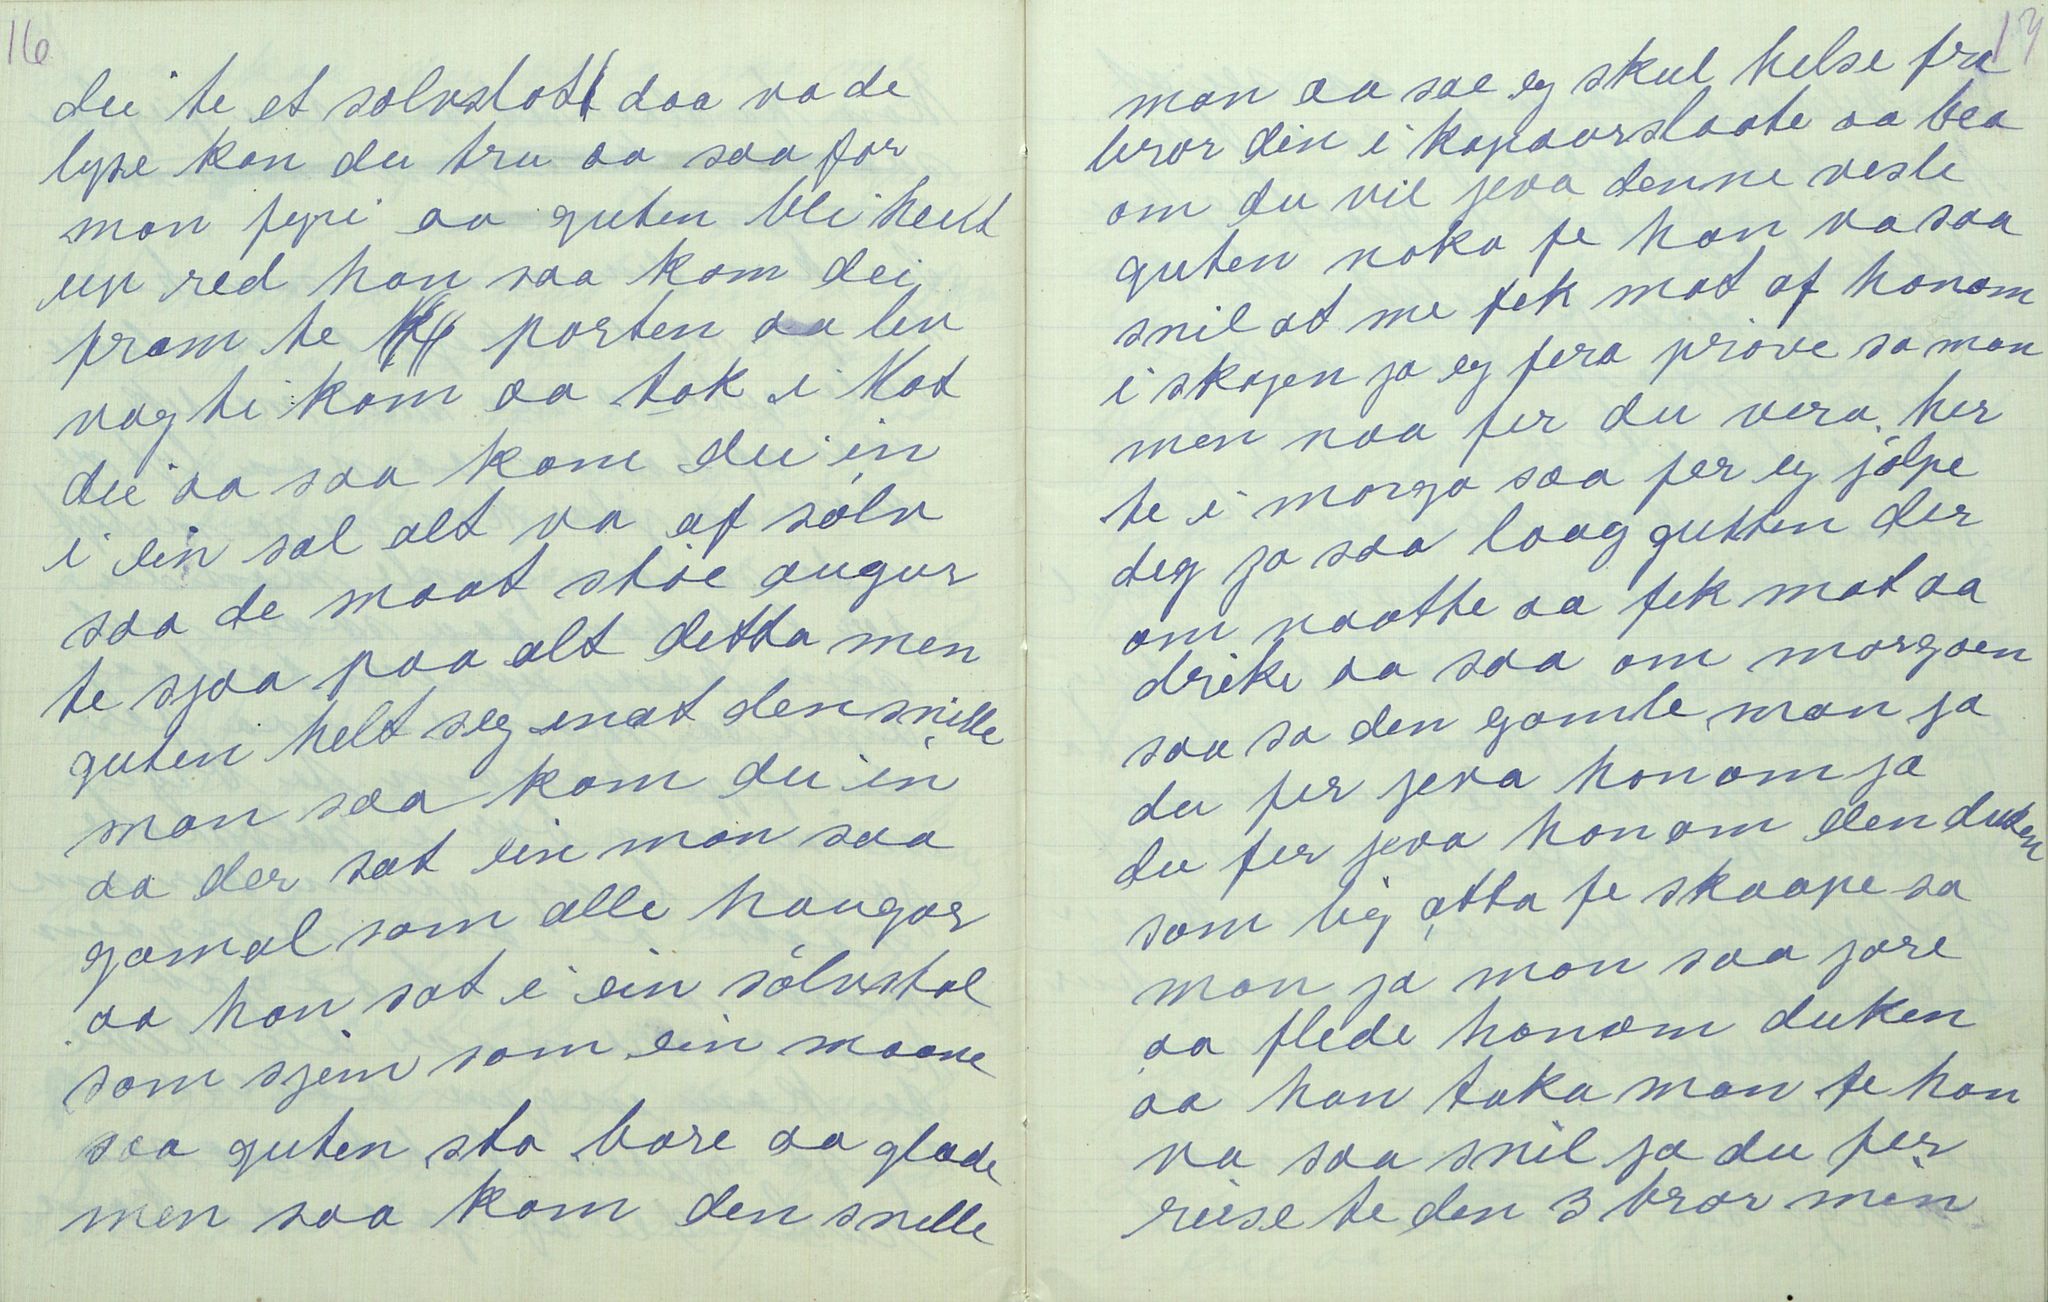 16
dei te et solvslott daa va de
lyse kan du tru aa saa for
man fyri aa guten bli heilt
up red han saa kom dei
fram te porten aa liv
vagti kom aa tok i Mot
dei aa saa kom dei in
i ein sal alt va af sólv
saa de maat stóe augur
te sjaa paa alt detta men
guten helt seg inat den snille
man saa kom dei in
aa der sat ein man saa
gamal som alle haugar
aa han sat i ein sólvstol
som sjein som ein maane
saa guten sto bare aa glade
men saa kom den snille
17
man aa sae eg skul helse fra
bror din i kopaarslaate aa bea
om du vil jeva denne vesle
guten noko fe han va saa
snil at me fek mat af honom
i skogen ja eg fera próve sa man
men naa fer du vera her
te i morgo saa fer eg jólpe
deg ja saa laag gutten der
om naatte aa fek mat aa
drike aa saa om morgoen
saa sa den gamle man ja
du fer jeva honom ja
du fer jeva honom den duken
som lig atta fe skaape sa
man ja man saa jore
aa flede honom duken
aa han taka man fe han
va saa snil ja du fer
reise te den 3 bror min